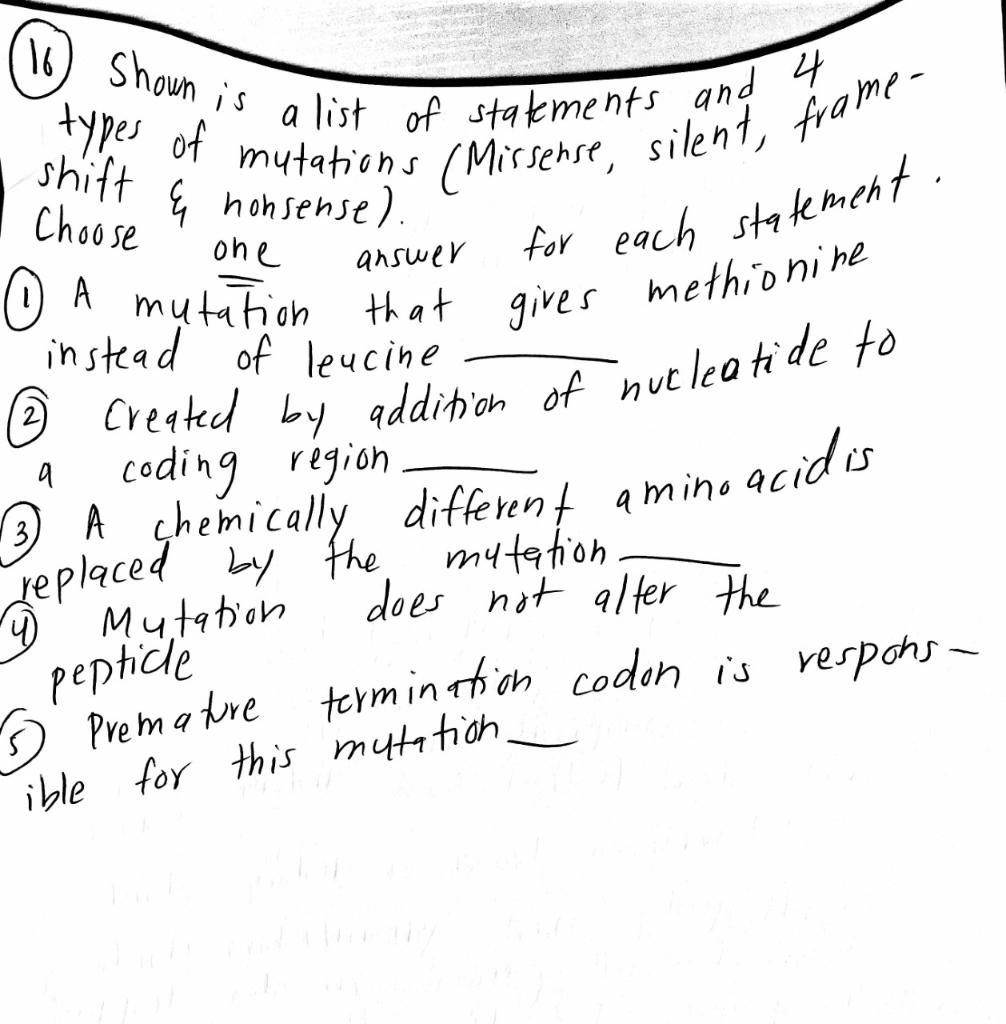 16 Shown is a list of statements and 4
types of mutations (Missense, silent, frame-
shift & nonsense).
Choose one answer for each statement.
1 A mutation that gives methionine
instead of leucine ______
2 Created by addition of nucleatide to
a coding region ______
3 A chemically different amino acid is
replaced by the mutation ______
4 Mutation does not alter the
peptide
5 Premature termination codon is respons-
ible for this mutation ___